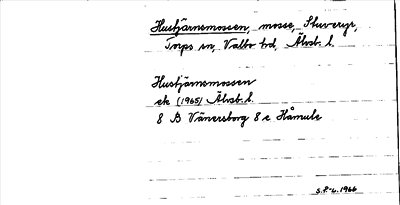 Hustjärnsmossen, mosse, Stuveryr,
Torps sn, Valbo hd, Älvsb. l.
Hustjärnsmossen
ek (1965) Älvsb. l.
8 B Vänersborg 8 e Håmule
S.F-U. 1966